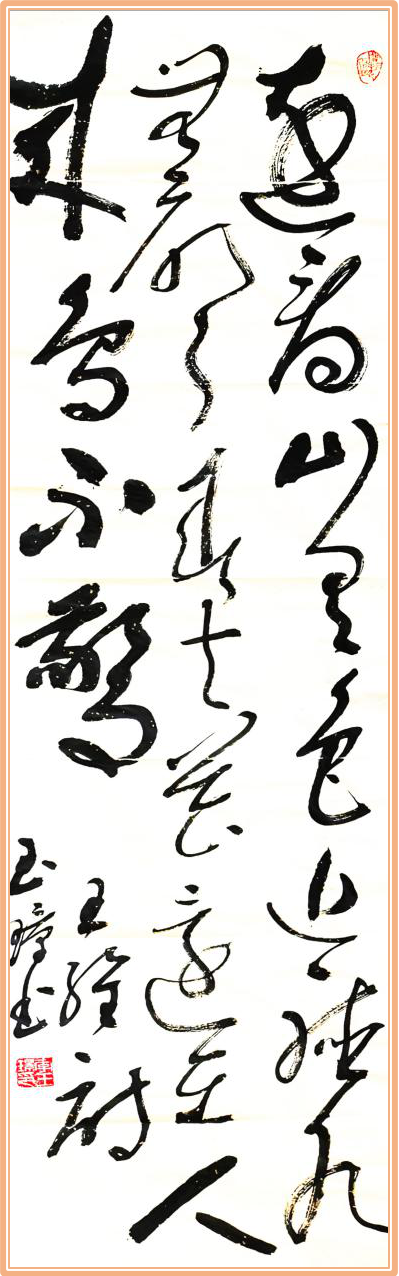 遠看山有色近聽水
無聲春去花還在人
來鳥不驚
王維詩
玉璋書